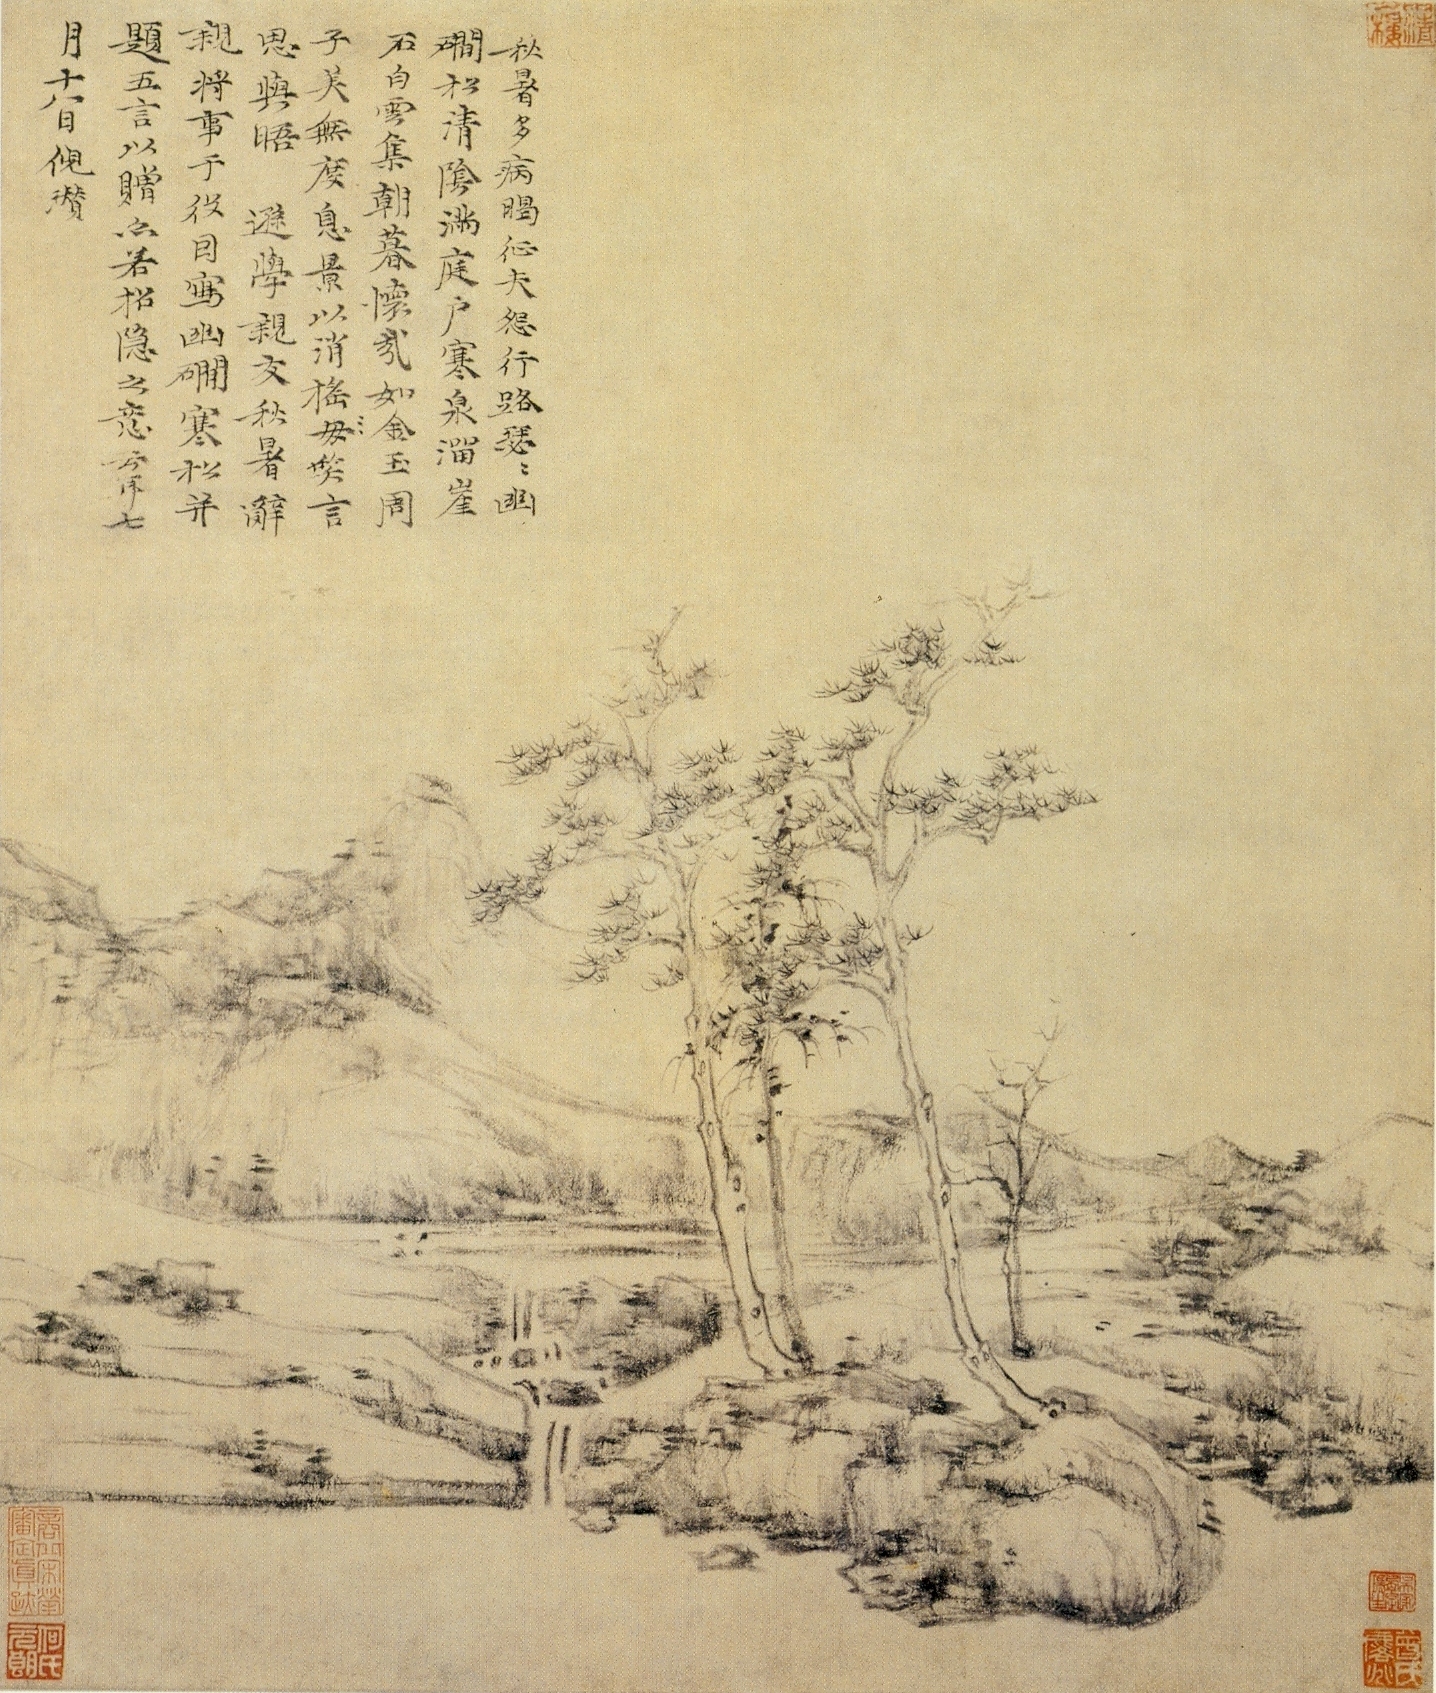 秋暑多病暍征夫怨行路瑟〻幽
磵松清陰滿庭戶寒泉溜崖
石白雲集朝暮懷哉如金玉周
子美無度息景以消搖毋〻笑言
思與晤　遜學親友秋暑辭
親將事于役因寫幽磵寒松并
題五言以贈亦若招隱之意云耳七
月十八日倪瓚
何氏元朗